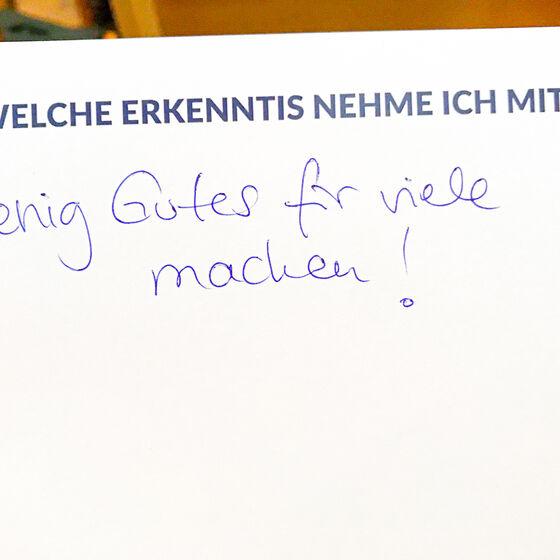 WELCHE ERKENNTIS NEHME ICH MIT
enig Gutes für viele
machen!